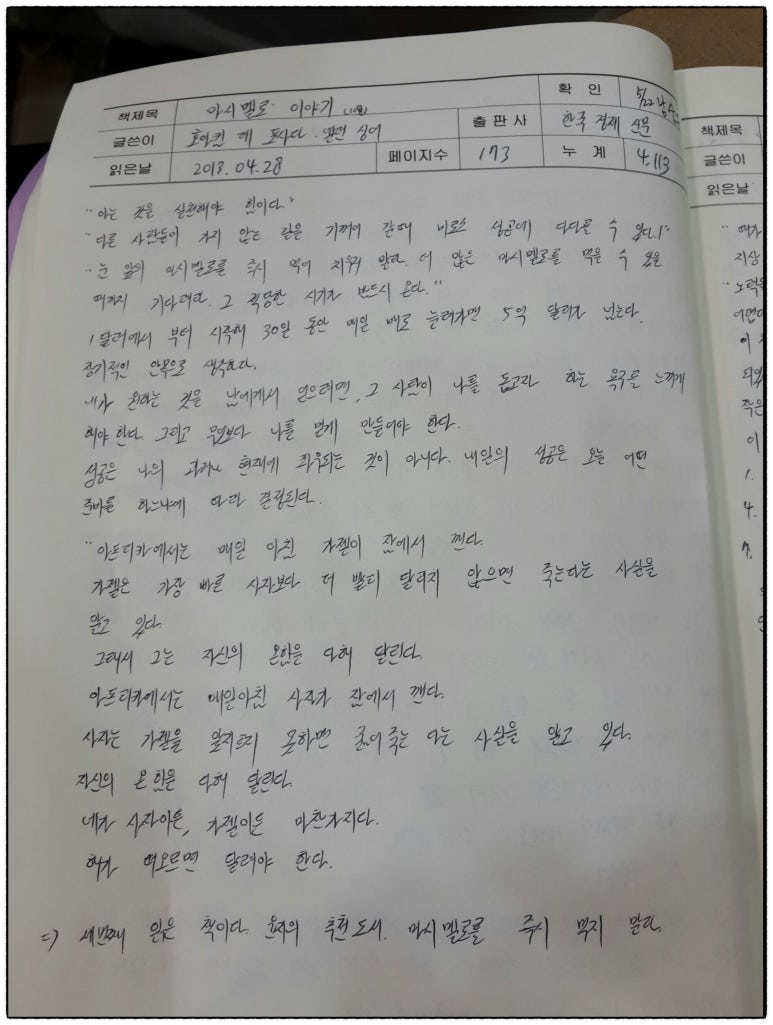 책제목 마시멜로 이야기 확인 5/22
글쓴이 호아킴 데 포사다. 엘런 싱어 출판사 한국 경제 신문
읽은날 2013.04.28 페이지수 173 누계 4.113
"아는 것을 실천해야 힘이다."
"다른 사람들이 가지 않는 길을 기꺼이 갈때 비로소 성공에 다다를 수 있다!"
"눈 앞의 마시멜로를 즉시 먹어 치우지 말라. 더 많은 마시멜로를 먹을 수 있을
때까지 기다려라. 그 적당한 시기가 반드시 온다."
1달러에서 부터 시작해 30일 동안 매일 배로 늘려가면 5억 달러가 넘는다.
장기적인 안목으로 생각하다.
내가 원하는 것을 남에게서 얻으려면, 그 사람이 나를 돕고자 하는 욕구를 느끼게
해야 한다. 그리고 무엇보다 나를 믿게 만들어야 한다.
성공은 나의 과거나 현재에 좌우되는 것이 아니다. 내일의 성공은 오늘 어떤
준비를 하느냐에 따라 결정된다.
"아프리카에서는 매일 아침 가젤이 잠에서 깬다.
가젤은 가장 빠른 사자보다 더 빨리 달리지 않으면 죽는다는 사실을
알고 있다.
그래서 그는 자신의 온힘을 다해 달린다.
아프리카에서는 매일아침 사자가 잠에서 깬다.
사자는 가젤을 앞지르지 못하면 굶어죽는 다는 사실을 알고 있다.
자신의 온 힘을 다해 달린다.
네가 사자이든, 가젤이든 마찬가지다.
해가 떠오르면 달려야 한다.
=> 세번째 읽은 책이다. 추천도서. 마시멜로를 즉시 먹지 말라.
책제목
글쓴이
읽은날
지상
"노력을
어렵다
이
작은
이
1.
4.
7.